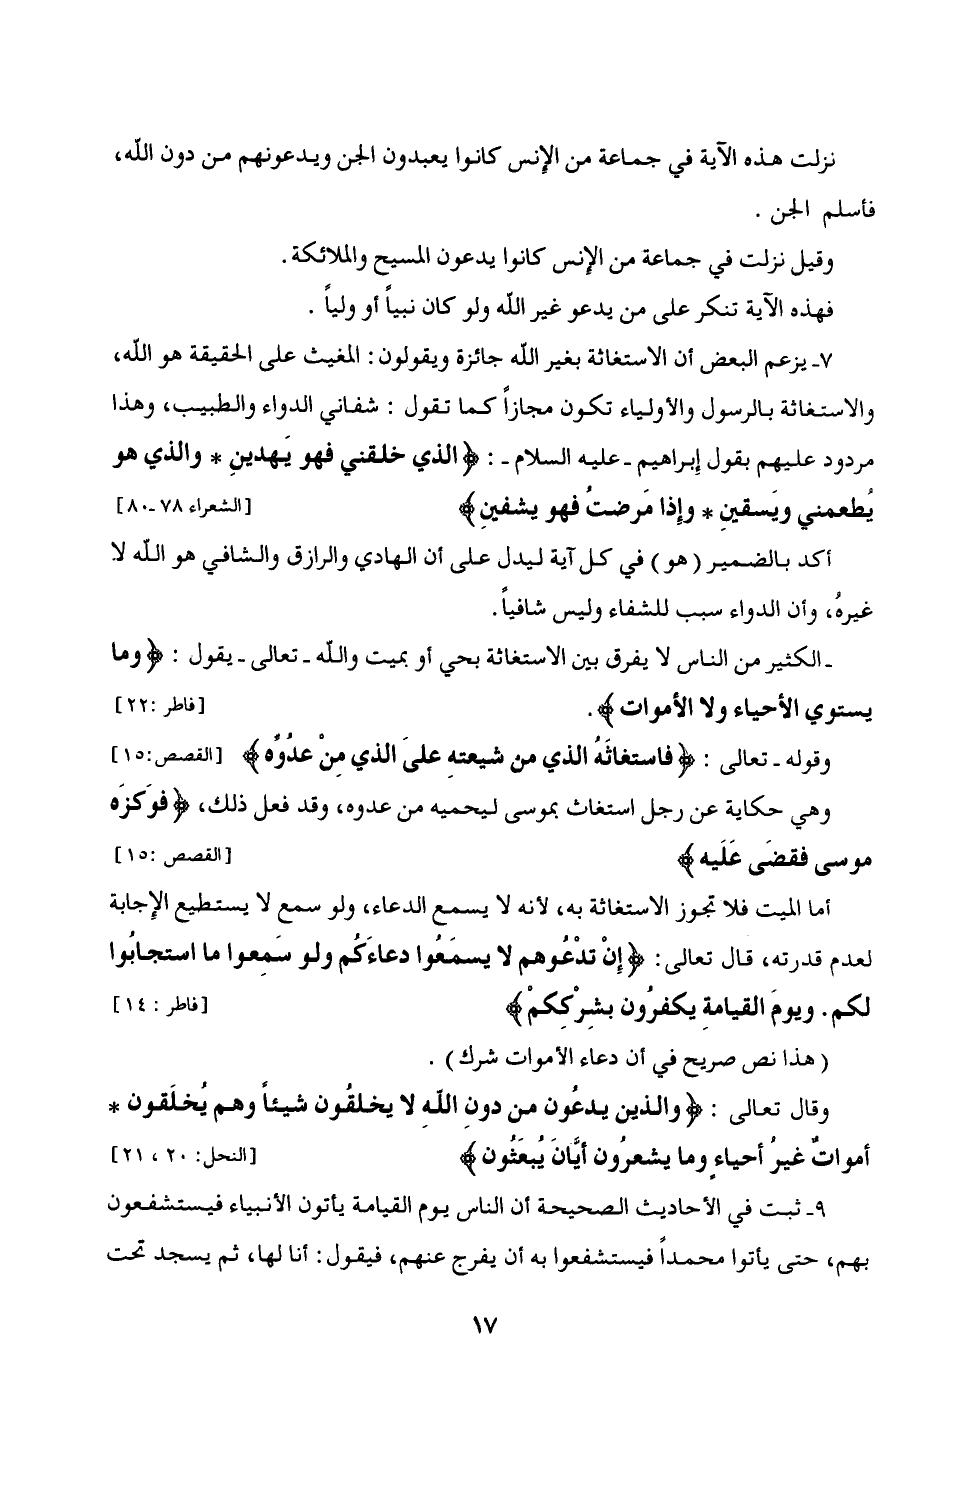 نزلت هذه الآية في جماعة من الإنس كانوا يعبدون الجن ويدعونهم من دون الله،
فأسلم الجن .
وقيل نزلت في جماعة من الإنس كانوا يدعون المسيح والملائكة.
فهذه الآية تنكر على من يدعو غير الله ولو كان نبياً أو ولياً .
٧ـ يزعم البعض أن الاستغاثة بغير الله جائزة ويقولون: المغيث على الحقيقة هو الله،
والاستغاثة بالرسول والأولياء تكون مجازاً كما تقول : شفاني الدواء والطبيب، وهذا
مردود عليهم بقول إبراهيم ـ عليه السلام ـ : ﴿الذي خلقني فهو يَهدينِ * والذي هو
يُطعمني ويَسقينِ * وإذا مَرضتُ فهو يشفينِ﴾ [الشعراء ٧٨ـ٨٠]
أكد بالضمير (هو) في كل آية ليدل على أن الهادي والرازق والشافي هو الله لا
غيرهُ، وأن الدواء سبب للشفاء وليس شافياً.
ـ الكثير من الناس لا يفرق بين الاستغاثة بحي أو بميت والله ـ تعالى ـ يقول : ﴿وما
يستوي الأحياء ولا الأموات﴾. [فاطر :٢٢]
وقوله ـ تعالى : ﴿فاستغاثَهُ الذي من شيعتهِ علىَ الذي مِنْ عدُوِّه﴾ [القصص:١٥]
وهي حكاية عن رجل استغاث بموسى ليحميه من عدوه، وقد فعل ذلك، ﴿فوَكزَه
موسى فقضَى عَلَيه﴾ [القصص :١٥]
أما الميت فلا تجوز الاستغاثة به، لأنه لا يسمع الدعاء، ولو سمع لا يستطيع الإجابة
لعدم قدرته، قال تعالى: ﴿إنْ تدْعُوهم لا يسمَعُوا دعاءَكُم ولو سَمِعوا ما استجابُوا
لكم. ويومَ القيامةِ يكفرُون بشِرْكِكمْ﴾ [فاطر : ١٤]
(هذا نص صريح في أن دعاء الأموات شرك) .
وقال تعالى : ﴿والذين يدعُون من دونِ اللهِ لا يخلقُون شيئاً وهم يُخلَقون *
أمواتٌ غيرُ أحياءٍ وما يشعرُون أيَّانَ يُبعَثُون﴾ [النحل: ٢٠ ، ٢١]
٩ـ ثبت في الأحاديث الصحيحة أن الناس يوم القيامة يأتون الأنبياء فيستشفعون
بهم، حتى يأتوا محمداً فيستشفعوا به أن يفرج عنهم، فيقول: أنا لها، ثم يسجد تحت
١٧